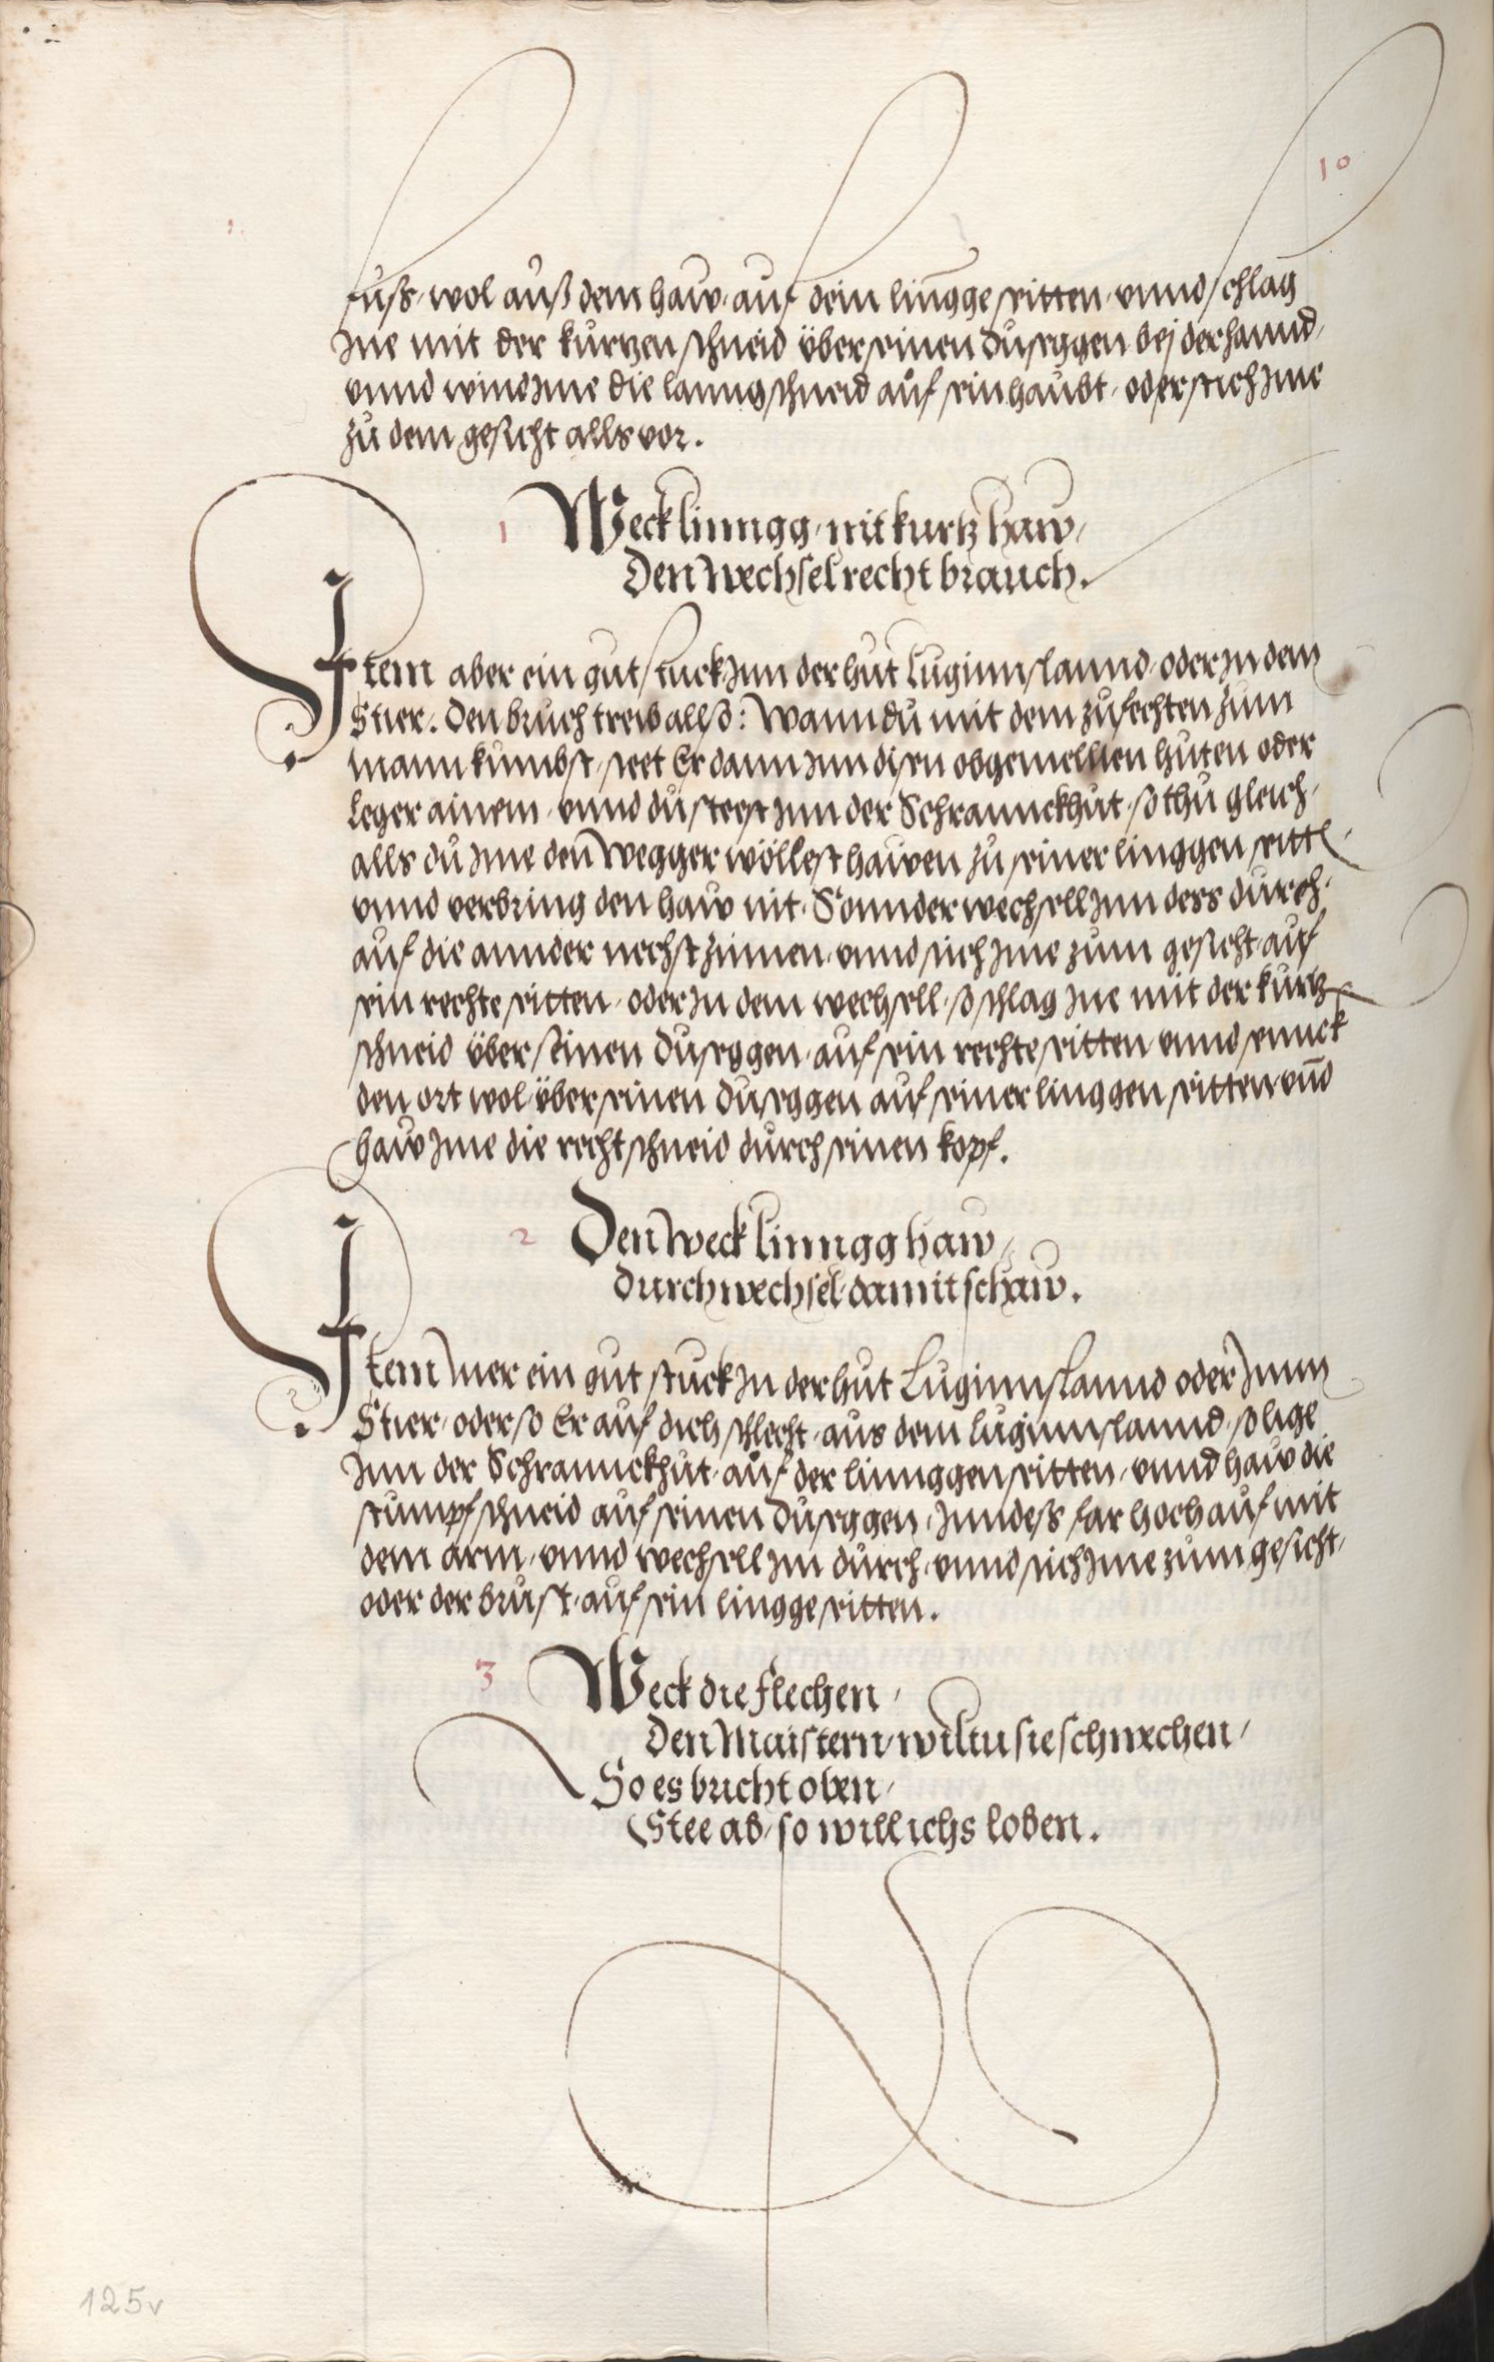 10
fuss, wol auß dem haw, auf dein lingge seitten, vnnd schlag
Ine mit der kurtzen schneid über seinen Duseggen bej der hannd,
vnnd wind Ime die lanng schneid auf sein haubt, oder stich Ime
zu dem gesicht alls vor.
1 Weck linngg, nit kurtz haw,
Den Wechsel recht brauch.
Item aber ein gut stuck Inn der hut Luginnslannd, oder In dem
Stier. Den bruch treib allso: Wann du mit dem zufechten zum
mann kumbst, steet Er dann Inn disen obgemellten huten oder
leger ainem, vnnd du steest Inn der Schrannckhut, so thu gleich,
alls du Ime den Wegger wöllest hawen zu seiner linggen seitt,
vnnd verbring den haw nit, Sonnder wechsell Inn dess durch,
auf die annder nechst zinnen, vnnd stich Ime zum gesicht, auf
sein rechte seitten, oder In dem wechsell, so schlag Ine mit der kurtz
schneid über seinen Dusggen, auf sein rechte seitten, vnnd sennck
den ort wol, über seinen Duseggen auf seiner linggen seitten, vnd
haw Ime die recht schneid durch seinen kopf.
2 Den Weck linngg haw,
durchwechsel, damit schaw.
Item Mer ein gut stuck In der hut Luginnslannd oder Inn
Stier, oder so Er auf dich schlecht, aus dem luginnslannd, so lige
Inn der Schrannckhut, auf der linnggen seitten, vnnd haw die
stumpf schneid auf seinen Duseggen, Inndess far hoch auf mit
dem arm, vnnd wechsell Im durch, vnnd stich Ime zum gesicht,
oder der brust, auf sein lingge seitten.
3 Weck die flechen,
den Maistern, wiltu sie schwechen,
So es bricht oben,
Stee ab, so will ichs loben.
125v